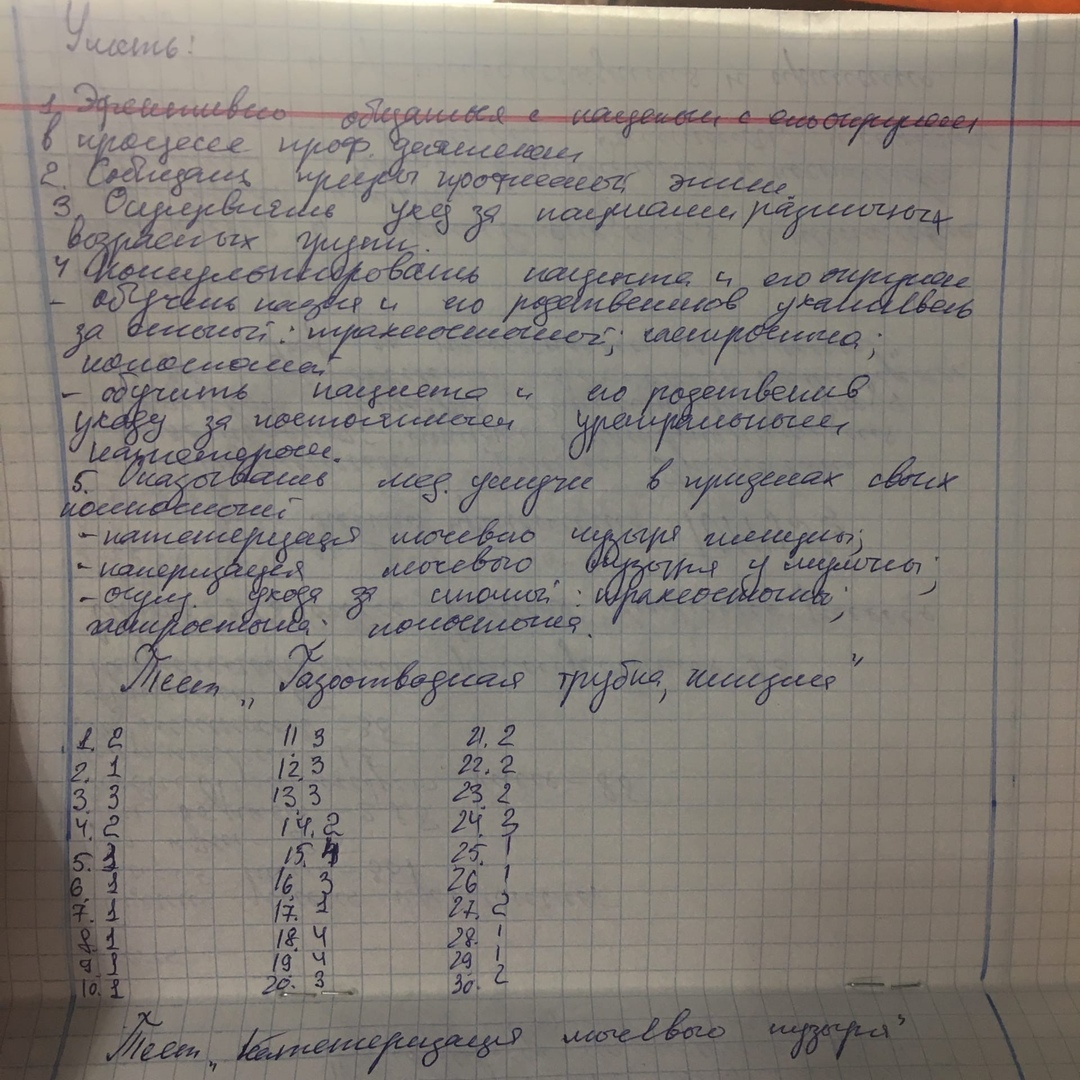 Уметь:
1. Эфективно общаться с пациентом с его окружением
в процессе проф. деятельности
2. Соблюдать принципы професиональной этики
3. Осуществлять уход за пациентами различных
возрасных групп.
4 Консультировать пациента и его окружение
- обучить пациента и его родственников уходу
за стомой: трахеостомой; гастростома;
колостома
- обучить пациента и его родственников
уходу за постоянным уретральным
катетером.
5. Оказывать мед. услуги в приделах своих
полномочий
- катетеризация мочевого пузыря женщины;
- катеризация мочевого пузыря у мужчины;
- осущ. ухода за стомой: трахеостома;
гастростома; колостома.
Тест „Газоотводная трубка, клизма"
1. 2 11 3 21. 2
2. 1 12. 3 22. 2
3. 3 13. 3 23. 2
4. 2 14. 2 24. 3
5. 15. 4 25. 1
6. 16. 3 26 1
7. 1 17. 1 27. 2
8. 1 18. 4 28. 1
9. 1 19 4 29 1
10. 1 20. 3 30. 2
Тест „Катетеризация мочевого пузыря"